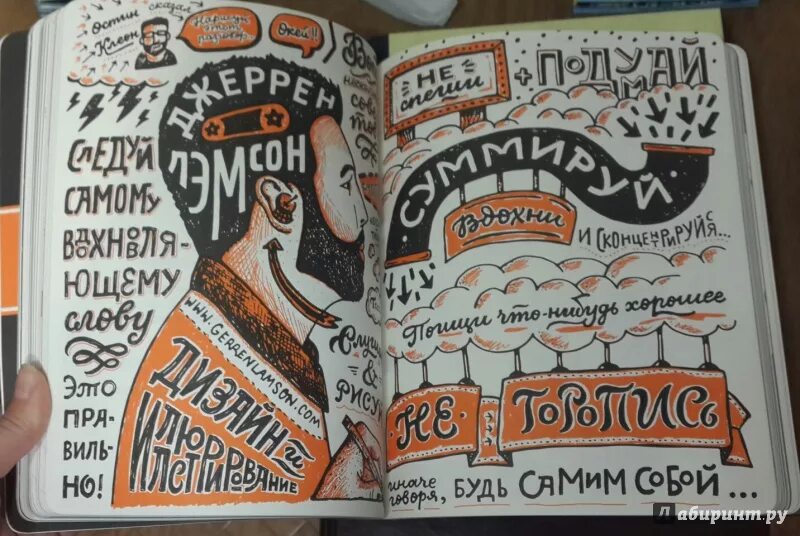 Остин сказал
Клеон
Нарисуй
этот
разворот.
Окей!!
ДЖЕРРЕН
ЛЭМСОН
СЛЕДУЙ
САМОМУ
ВДОХНОВЛЯ-
ЮЩЕМУ
СЛОВУ
ЭТО
ПРА-
ВИЛЬ-
НО!
WWW.GERRENLAMSON.COM
ДИЗАЙН и
ИЛЛЮСТРИРОВАНИЕ
&
НЕ
СПЕШИ
+ ПОДУМАЙ
СУММИРУЙ
Вдохни
И СКОНЦЕНТРИРУЙСЯ...
Поищи что-нибудь хорошее
НЕ ТОРОПИСЬ
иначе
говоря, БУДЬ САМИМ СОБОЙ ...
Лабиринт.ру